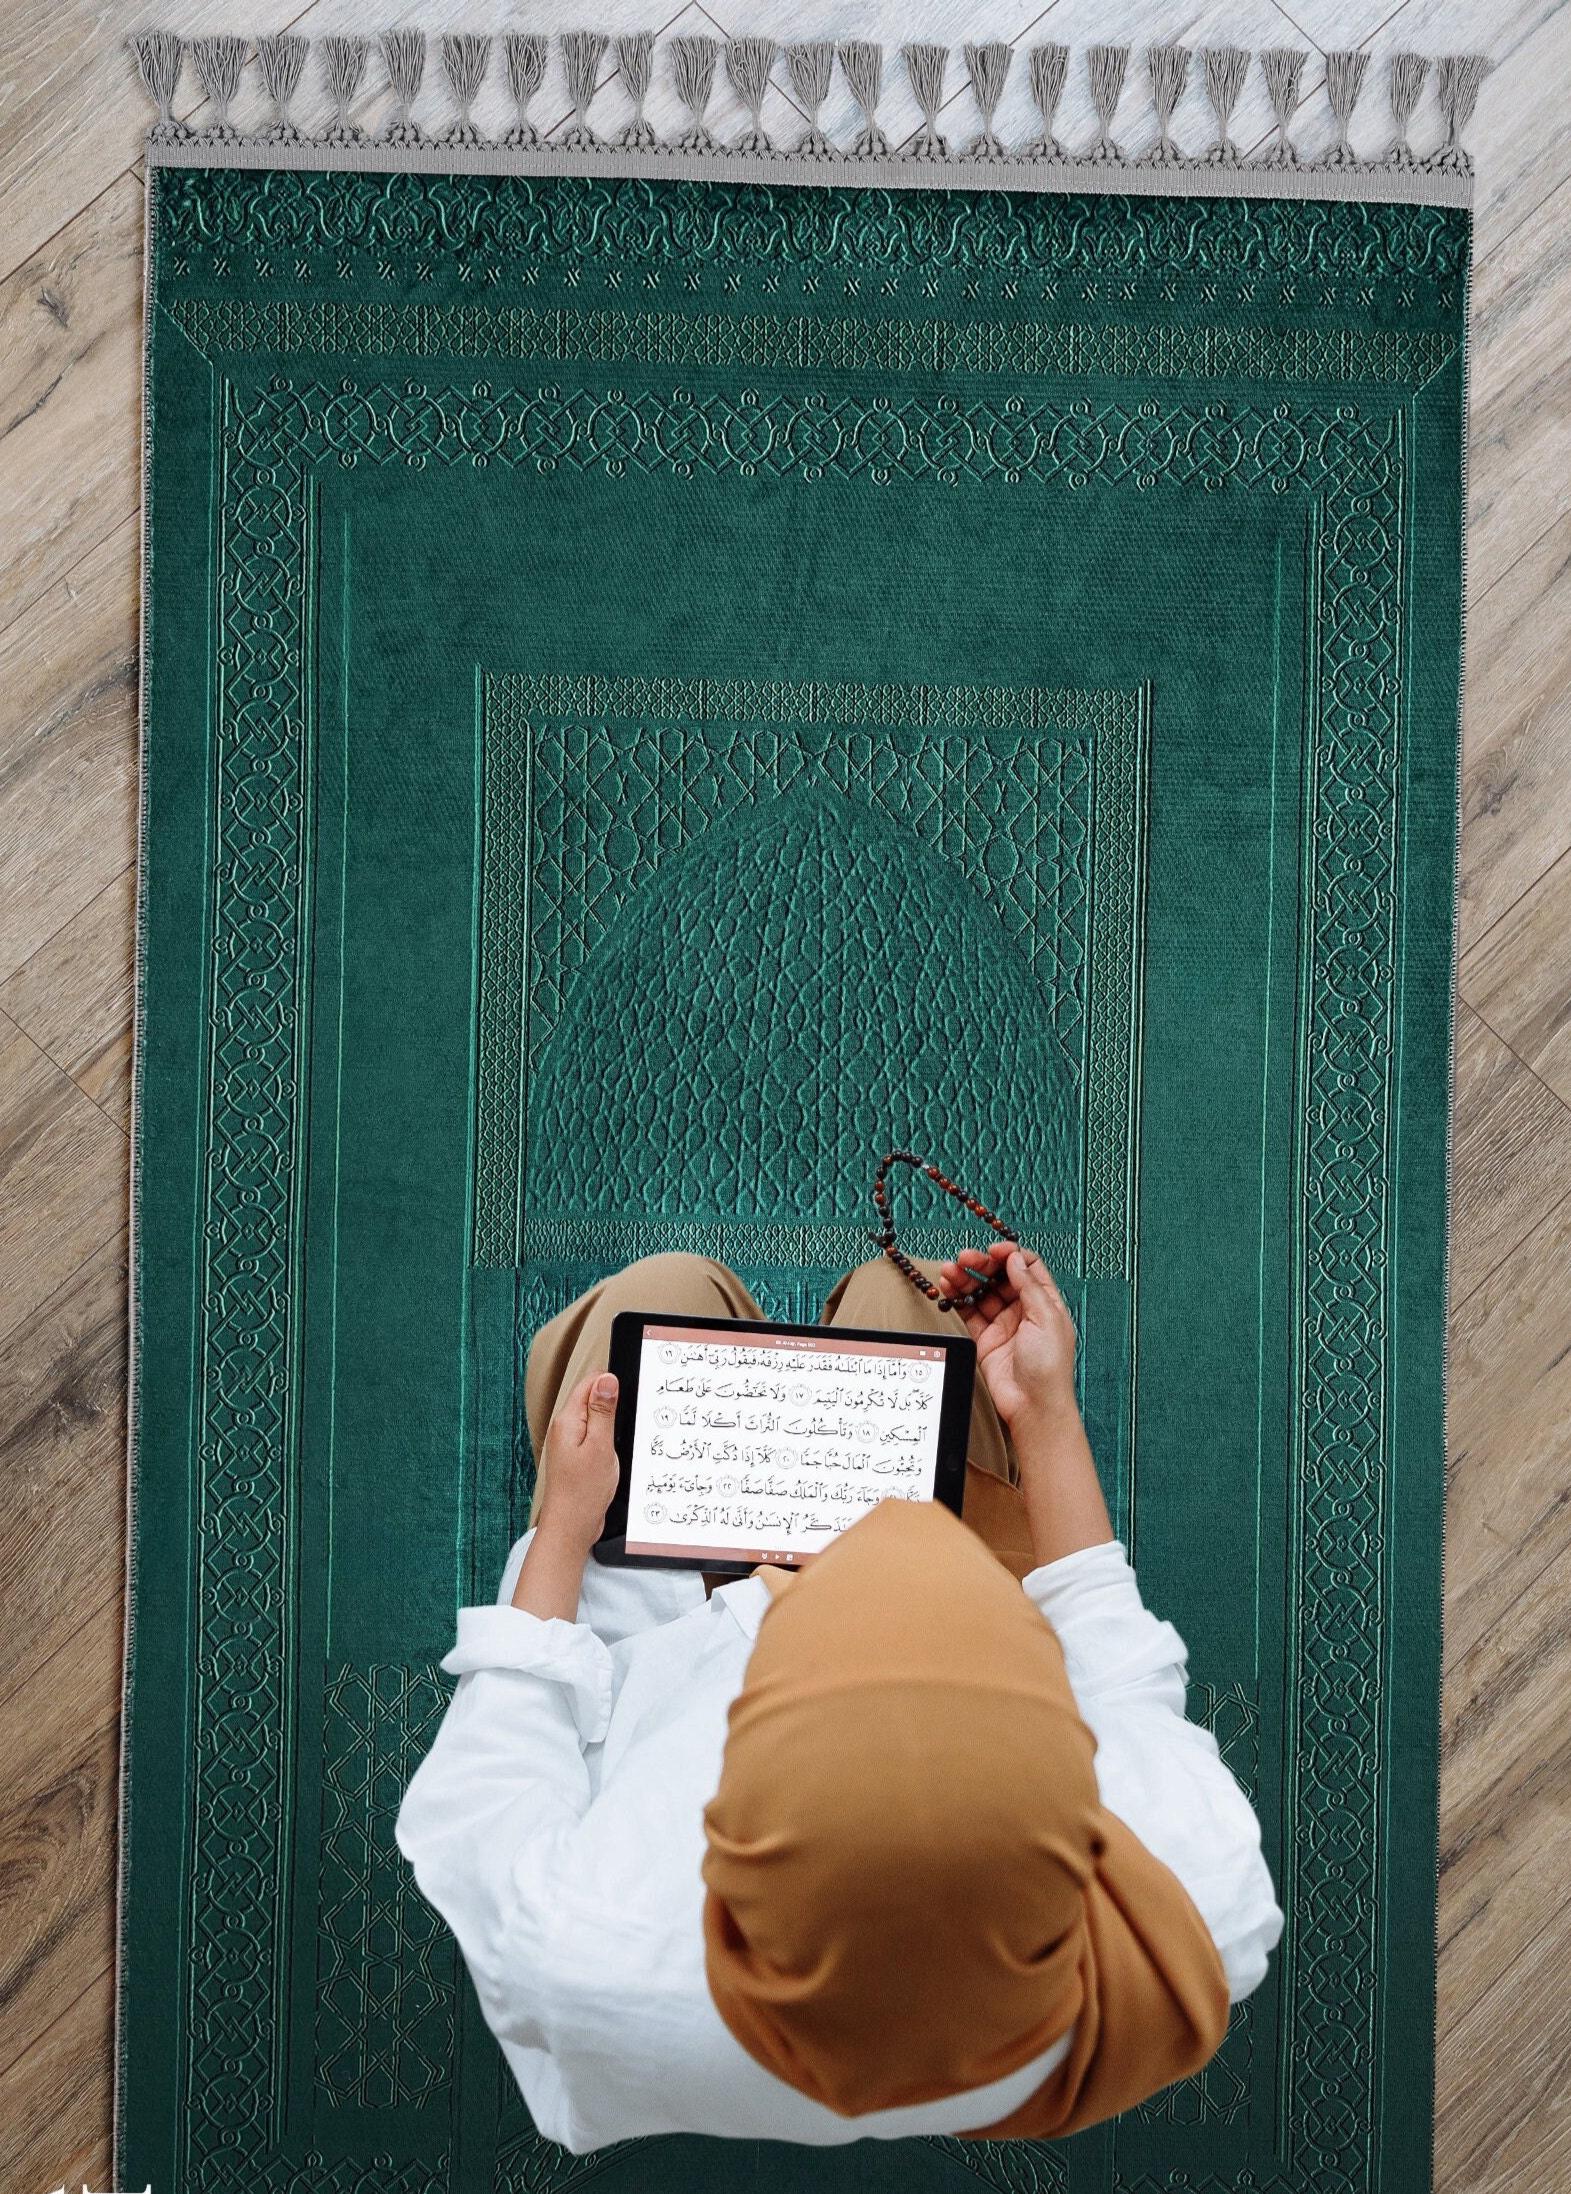 وَأَمَّآ إِذَا مَا ٱبْتَلَىٰهُ فَقَدَرَ عَلَيْهِ رِزْقَهُۥ فَيَقُولُ رَبِّىٓ أَهَٰنَنِ ١٦
كَلَّا ۖ بَل لَّا تُكْرِمُونَ ٱلْيَتِيمَ ١٧ وَلَا تَحَٰٓضُّونَ عَلَىٰ طَعَامِ
ٱلْمِسْكِينِ ١٨ وَتَأْكُلُونَ ٱلتُّرَاثَ أَكْلًا لَّمًّا ١٩
وَتُحِبُّونَ ٱلْمَالَ حُبًّا جَمًّا ٢٠ كَلَّآ إِذَا دُكَّتِ ٱلْأَرْضُ دَكًّا
وَجَآءَ رَبُّكَ وَٱلْمَلَكُ صَفًّا صَفًّا ٢٢ وَجِا۟ىٓءَ يَوْمَئِذٍۭ
ٱلْإِنسَٰنُ وَأَنَّىٰ لَهُ ٱلذِّكْرَىٰ ٢٣